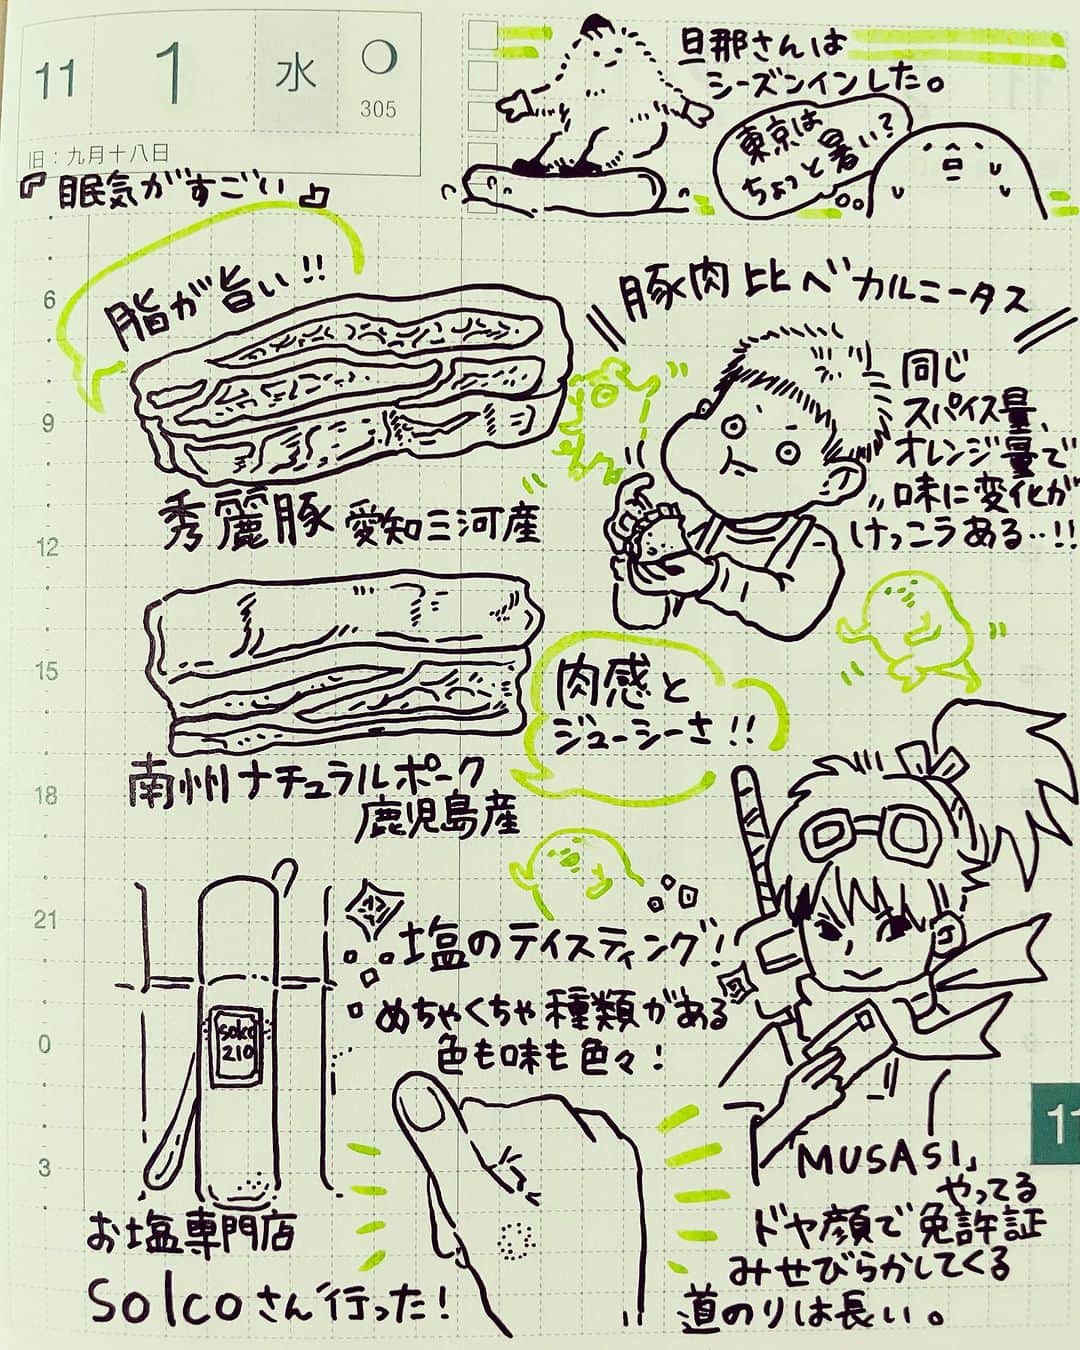 11 1 水 ○
305
旧：九月十八日
眠気がすごい
旦那さんは
シーズンインした。
東京は
ちょっと暑い？
脂が旨い!!
豚肉比べカルニータス
同じ
スパイス量、
オレンジ量で
味に変化が
けっこうある…!!
秀麗豚 愛知三河産
肉感と
ジューシーさ!!
南州ナチュラルポーク
鹿児島産
塩のテイスティング!
めちゃくちゃ種類がある
色も味も色々!
solco
210
お塩専門店
solcoさん行った!
「MUSASI」
やってる
ドヤ顔で免許証
みせびらかしてくる
道のりは長い。
6
9
12
15
18
21
0
3
11